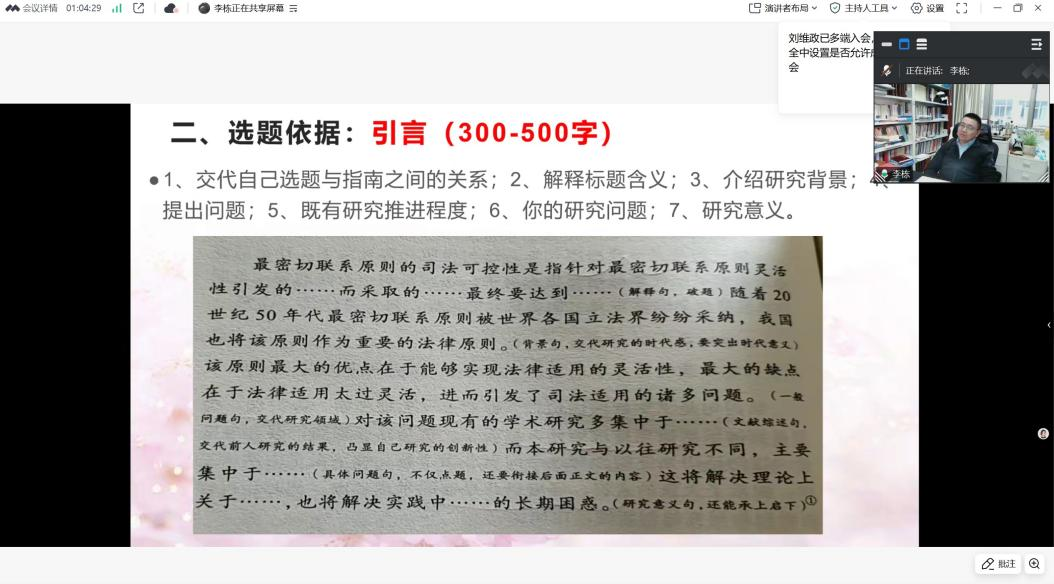 会议详情 01:04:29 李栋正在共享屏幕 演讲者布局 主持人工具 设置
刘维政已多端入会,
全中设置是否允许
会
正在讲话: 李栋;
李栋
二、选题依据：引言（300-500字）
●1、交代自己选题与指南之间的关系；2、解释标题含义；3、介绍研究背景；
提出问题；5、既有研究推进程度；6、你的研究问题；7、研究意义。
最密切联系原则的司法可控性是指针对最密切联系原则灵活
性引发的……而采取的……最终要达到……（解释句，破题）随着20
世纪50年代最密切联系原则被世界各国立法界纷纷采纳，我国
也将该原则作为重要的法律原则。（背景句，交代研究的时代感，要突出时代意义）
该原则最大的优点在于能够实现法律适用的灵活性，最大的缺点
在于法律适用太过灵活，进而引发了司法适用的诸多问题。（一般
问题句，交代研究领域）对该问题现有的学术研究多集中于……（文献综述句，
交代前人研究的结果，凸显自己研究的创新性）而本研究与以往研究不同，主要
集中于……（具体问题句，不仅点题，还要衔接后面正文的内容）这将解决理论上
关于……，也将解决实践中……的长期困惑。（研究意义句，还能承上启下）①
批注